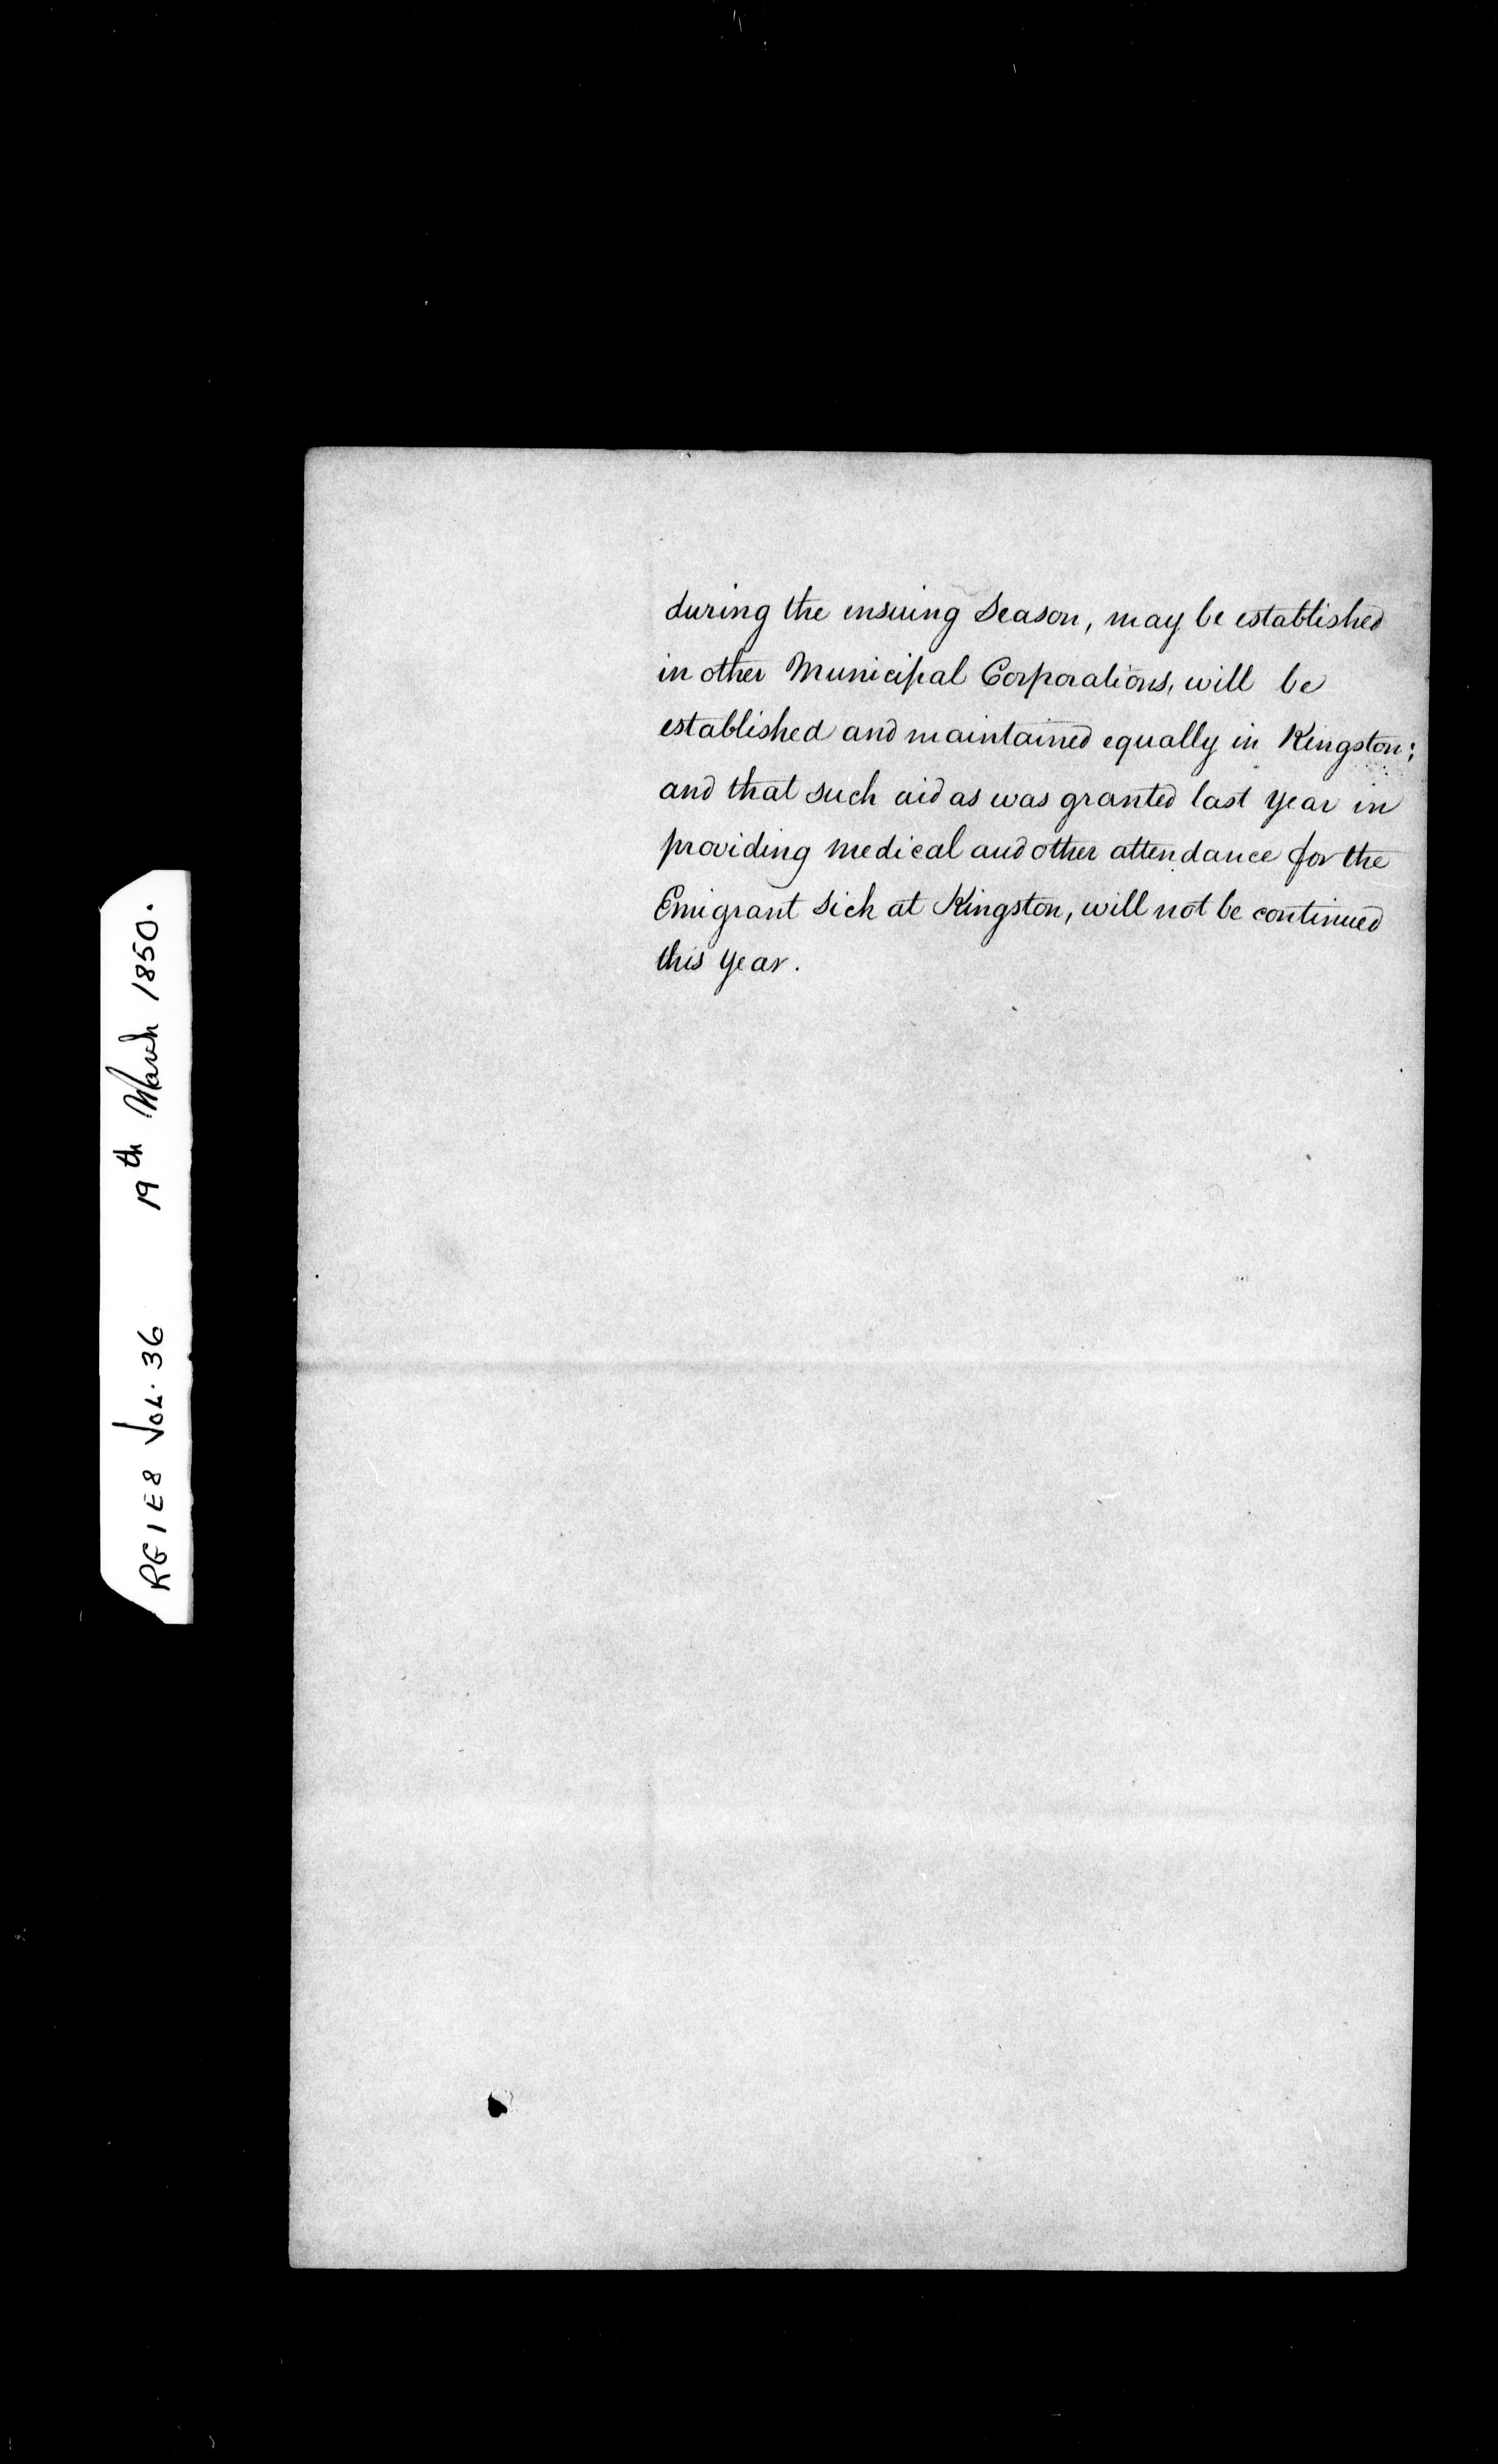 during the ensuing Season, may be established
in other Municipal Corporations, will be
established and maintained equally in Kingston;
and that such aid as was granted last year in
providing medical and other attendance for the
Emigrant Sick at Kingston, will not be continued
this year.
RG 1 E8 Vol. 36 19th March 1850.